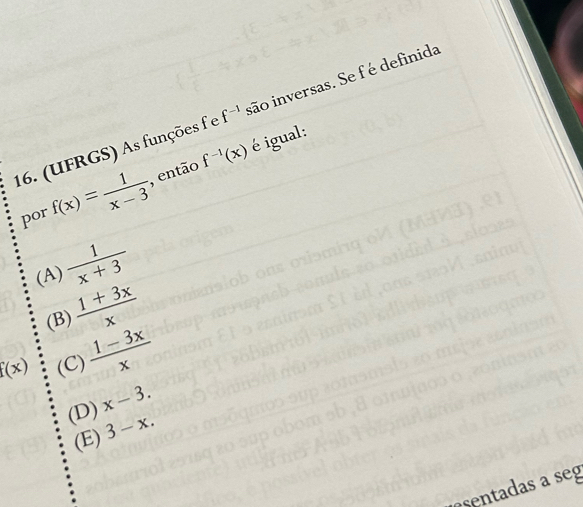 16. (UFRGS) As funções f e f⁻¹ são inversas. Se f é definida
por f(x) = 1/(x − 3), então f⁻¹(x) é igual:
(A) 1/(x + 3)
(B) (1 + 3x)/x
f(x)
(C) (1 − 3x)/x
(D) x − 3.
(E) 3 − x.
sentadas a seg